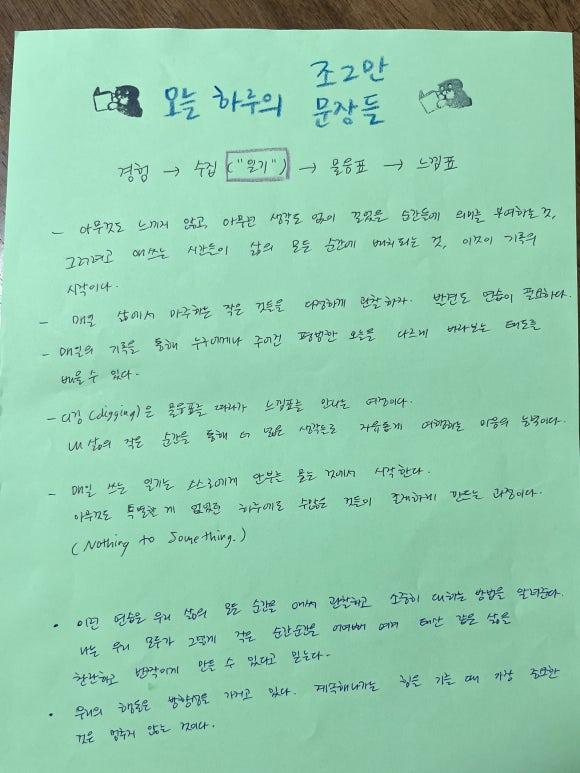 오늘 하루의 조그만 문장들
경험 → 수집 ("일기") → 물음표 → 느낌표
- 아무것도 느끼지 않고, 아무런 생각도 없이 있었을 순간들에 의미를 부여하는 것,
그러려고 애쓰는 시간들이 삶의 모든 순간에 배치되는 것, 이것이 기록의
시작이다.
- 매일 삶에서 마주하는 작은 것들을 다정하게 관찰하자. 발견도 연습이 필요하다.
- 매일의 기록을 통해 누구에게나 주어진 평범한 오늘을 다르게 바라보는 태도를
배울 수 있다.
- 디깅(digging)은 물음표를 따라가 느낌표를 만나는 여정이다.
내 삶의 작은 순간을 통해 더 넓은 생각들로 자유롭게 여행하는 마음의 능력이다.
- 매일 쓰는 일기는 스스로에게 안부를 묻는 것에서 시작한다.
아무것도 특별한 게 없었던 하루에도 수많은 것들이 존재하게 만드는 과정이다.
(Nothing to Something.)
• 이런 연습은 우리 삶의 모든 순간을 애써 관찰하고 소중히 대하는 방법을 알려준다.
나는 우리 모두가 그렇게 작은 순간순간을 어여삐 여겨 태산 같은 삶을
찬란하고 반짝이게 만들 수 있다고 믿는다.
• 우리의 행동은 방향성을 가지고 있다. 계속해나가는 힘을 기를 때 가장 중요한
것은 멈추지 않는 것이다.